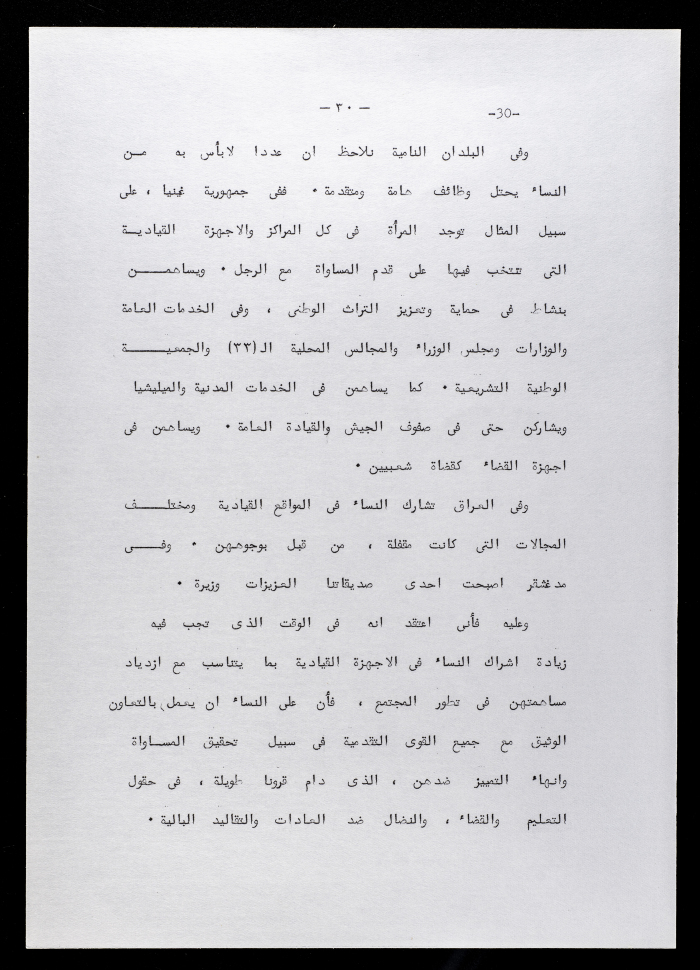 - ٣٠ -
-30-
وفى البلدان النامية نلاحظ ان عددا لابأس به مـن
النساء يحتل وظائف هامة ومتقدمة ٠ ففى جمهورية غينيا ، على
سبيل المثال توجد المرأة فى كل المراكز والاجهزة القياديـة
التى تنتخب فيها على قدم المساواة مع الرجل ٠ ويساهمـــن
بنشاط فى حماية وتعزيز التراث الوطنى ، وفى الخدمات العامة
والوزارات ومجلس الوزراء والمجالس المحلية الـ(٣٣) والجمعيـــــة
الوطنية التشريعية ٠ كما يساهمن فى الخدمات المدنية والميليشيا
ويشاركن حتى فى صفوف الجيش والقيادة العامة ٠ ويساهمن فى
اجهزة القضاء كقضاة شعبيين ٠
وفى العراق تشارك النساء فى المواقع القيادية ومختلــــف
المجالات التى كانت مقفلة ، من قبل بوجوههن ٠ وفــى
مدغشقر اصبحت احدى صديقاتنا العزيزات وزيرة ٠
وعليه فأنى اعتقد انه فى الوقت الذى تجب فيه
زيادة اشراك النساء فى الاجهزة القيادية بما يتناسب مع ازدياد
مساهمتهن فى تطور المجتمع ، فأن على النساء ان يعمل بالتعاون
الوثيق مع جميع القوى التقدمية فى سبيل تحقيق المسـاواة
وانهاء التمييز ضدهن ، الذى دام قرونا طويلة ، فى حقول
التعليم والقضاء ، والنضال ضد العادات والتقاليد البالية ٠